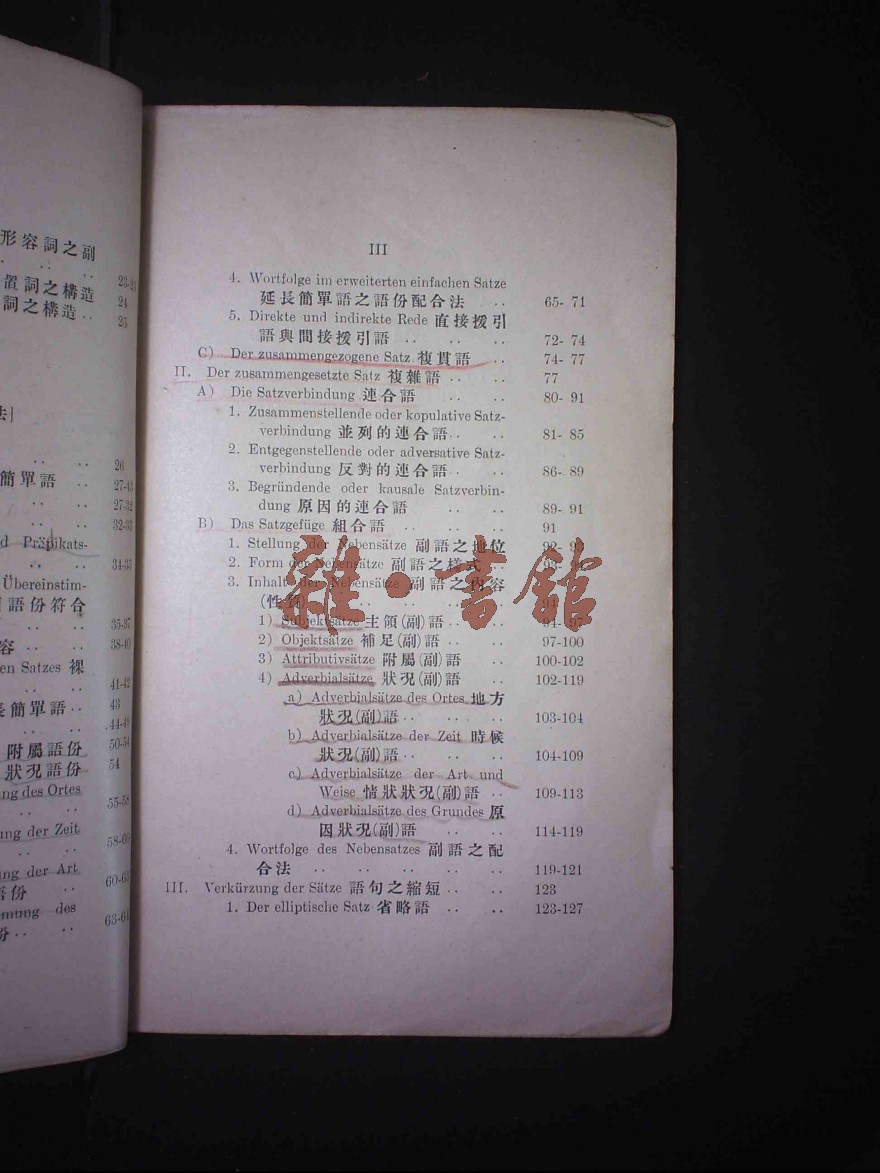 形容詞之副
23-24
置詞之構造 24
詞之構造 25
法]
26
簡單語 27-43
27-32
32-33
d Präpikats-
34-35
Übereinstim-
語份符合
35-37
容 38-40
en Satzes 裸
41-42
長簡單語 43
44-49
附屬語份 50-54
狀況語份 54
ng des Ortes
55-58
ng der Zeit
58-60
ng der Art
語份 60-63
mung des
份 63-64
III
4. Wortfolge im erweiterten einfachen Satze
延長簡單語之語份配合法 .. 65- 71
5. Direkte und indirekte Rede 直接援引
語與間接援引語 .. .. .. 72- 74
C) Der zusammengezogene Satz 複貫語 .. 74- 77
II. Der zusammengesetzte Satz 複雜語 .. .. 77
A) Die Satzverbindung 連合語 .. .. 80- 91
1. Zusammenstellende oder kopulative Satz-
verbindung 並列的連合語 .. .. 81- 85
2. Entgegenstellende oder adversative Satz-
verbindung 反對的連合語 .. .. 86- 89
3. Begründende oder kausale Satzverbin-
dung 原因的連合語 .. .. 89- 91
B) Das Satzgefüge 組合語 .. .. .. 91
1. Stellung der Nebensätze 副語之地位 92- 93
2. Form der Nebensätze 副語之樣式
3. Inhalt der Nebensätze 副語之內容
(性質) .. .. 94
1) Subjektsätze 主領(副)語 .. 94- 97
2) Objektsätze 補足(副)語 .. .. 97-100
3) Attributivsätze 附屬(副)語 .. 100-102
4) Adverbialsätze 狀況(副)語 .. 102-119
a) Adverbialsätze des Ortes 地方
狀況(副)語 .. .. .. 103-104
b) Adverbialsätze der Zeit 時候
狀況(副)語 .. .. .. 104-109
c) Adverbialsätze der Art und
Weise 情狀狀況(副)語 .. 109-113
d) Adverbialsätze des Grundes 原
因狀況(副)語 .. .. 114-119
4. Wortfolge des Nebensatzes 副語之配
合法 .. .. .. .. .. 119-121
III. Verkürzung der Sätze 語句之縮短 .. .. 123
1. Der elliptische Satz 省略語 .. .. 123-127
雜·書館